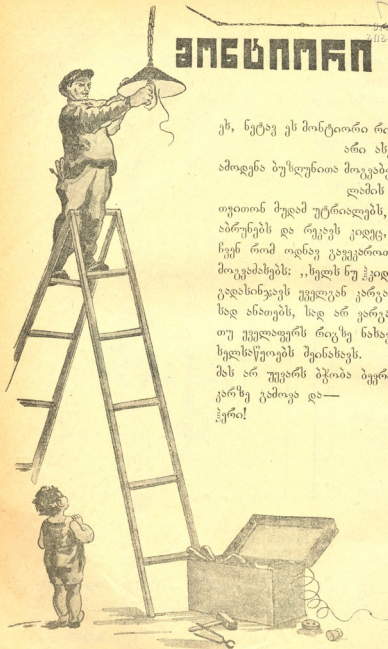 მონტიორი
ეხ, ნეტავ ეს მონტიორი
არი
ამოდენა ბუზღუნითა
ლამის
თვითონ მუდამ უტრიალებს,
აბრუნებს და რეკავს კიდეც,
ჩვენ რომ ოდნავ
მოგვაძახებს: ,,ხელს ნუ
გადასინჯავს ყველგან
სად ანათებს, სად არ
თუ ყველაფერს რიგზე
ხელსაწყოებს შეინახავს.
მას არ უყვარს ბჭობა
კარზე გამოვა და—
ჰერი!